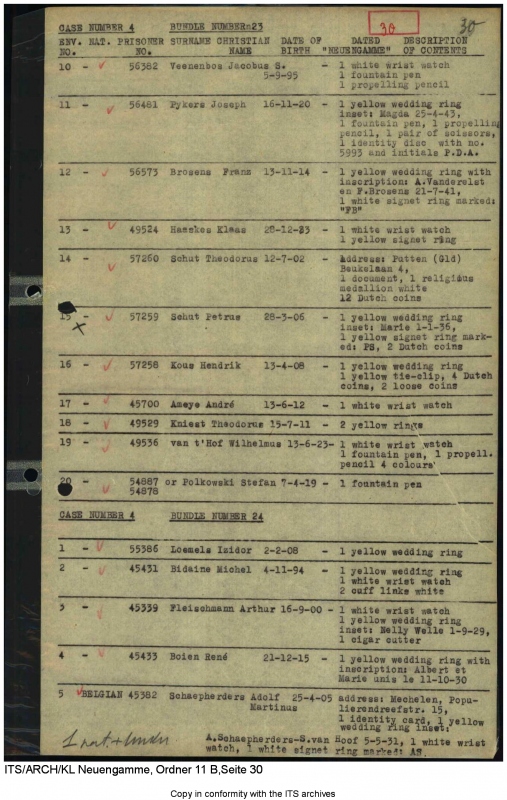 30
30
CASE NUMBER 4 BUNDLE NUMBERn23
ENV. NAT. PRISONER SURNAME CHRISTIAN DATE OF DATED DESCRIPTION
NO. NO. NAME BIRTH "NEUENGAMME" OF CONTENTS
10 - 56382 Veenenbos Jacobus S. - 1 white wrist watch
5-9-95 1 fountain pen
1 propelling pencil
11 - 56481 Pykers Joseph 16-11-20 - 1 yellow wedding ring
inset: Magda 25-4-43,
1 fountain pen, 1 propelling
pencil, 1 pair of scissors,
1 identity disc with no.
5993 and initials P.D.A.
12 - 56573 Brosens Frans 13-11-14 - 1 yellow wedding ring with
inscription: A.Vanderelst
en F.Brosens 21-7-41,
1 white signet ring marked:
"FB"
13 - 49524 Haeckes Klaas 28-12-23 - 1 white wrist watch
1 yellow signet ring
14 - 57260 Schut Theodorus 12-7-02 - Address: Putten (Gld)
Beukelaan 4,
1 document, 1 religidus
medallion white
12 Dutch coins
15 - 57259 Schut Petrus 28-3-06 - 1 yellow wedding ring
inset: Marie 1-1-36,
1 yellow signet ring mark-
ed: PS, 2 Dutch coins
16 - 57258 Kous Hendrik 13-4-08 - 1 yellow wedding ring
1 yellow tie-clip, 4 Dutch
coins, 2 loose coins
17 - 45700 Ameye André 13-6-12 - 1 white wrist watch
18 - 49529 Kniest Theodorus 15-7-11 - 2 yellow rings
19 - 49536 van t'Hof Wilhelmus 13-6-23- 1 white wrist watch
1 fountain pen, 1 propell.
pencil 4 colours'
20 - 54887 or Polkowski Stefan 7-4-19 - 1 fountain pen
54878
CASE NUMBER 4 BUNDLE NUMBER 24
1 - 55386 Loemels Isidor 2-2-08 - 1 yellow wedding ring
2 - 45431 Bidaine Michel 4-11-94 - 1 yellow wedding ring
1 white wrist watch
2 cuff links white
3 - 45339 Fleischmann Arthur 16-9-00 - 1 white wrist watch
1 yellow wedding ring
inset: Nelly Welle 1-9-29,
1 cigar cutter
4 - 45433 Boien René 21-12-15 - 1 yellow wedding ring with
inscription: Albert et
Marie unis le 11-10-30
5 BELGIAN 45382 Schaepherders Adolf 25-4-05 address: Mechelen, Popu-
Martinus lierendreefstr. 15,
1 identity card, 1 yellow
wedding ring inset:
A.Schaepherders-S.van Hoof 5-5-31, 1 white wrist
watch, 1 white signet ring marked: AS.
1 nat.+
ITS/ARCH/KL Neuengamme, Ordner 11 B,Seite 30
Copy in conformity with the ITS archives